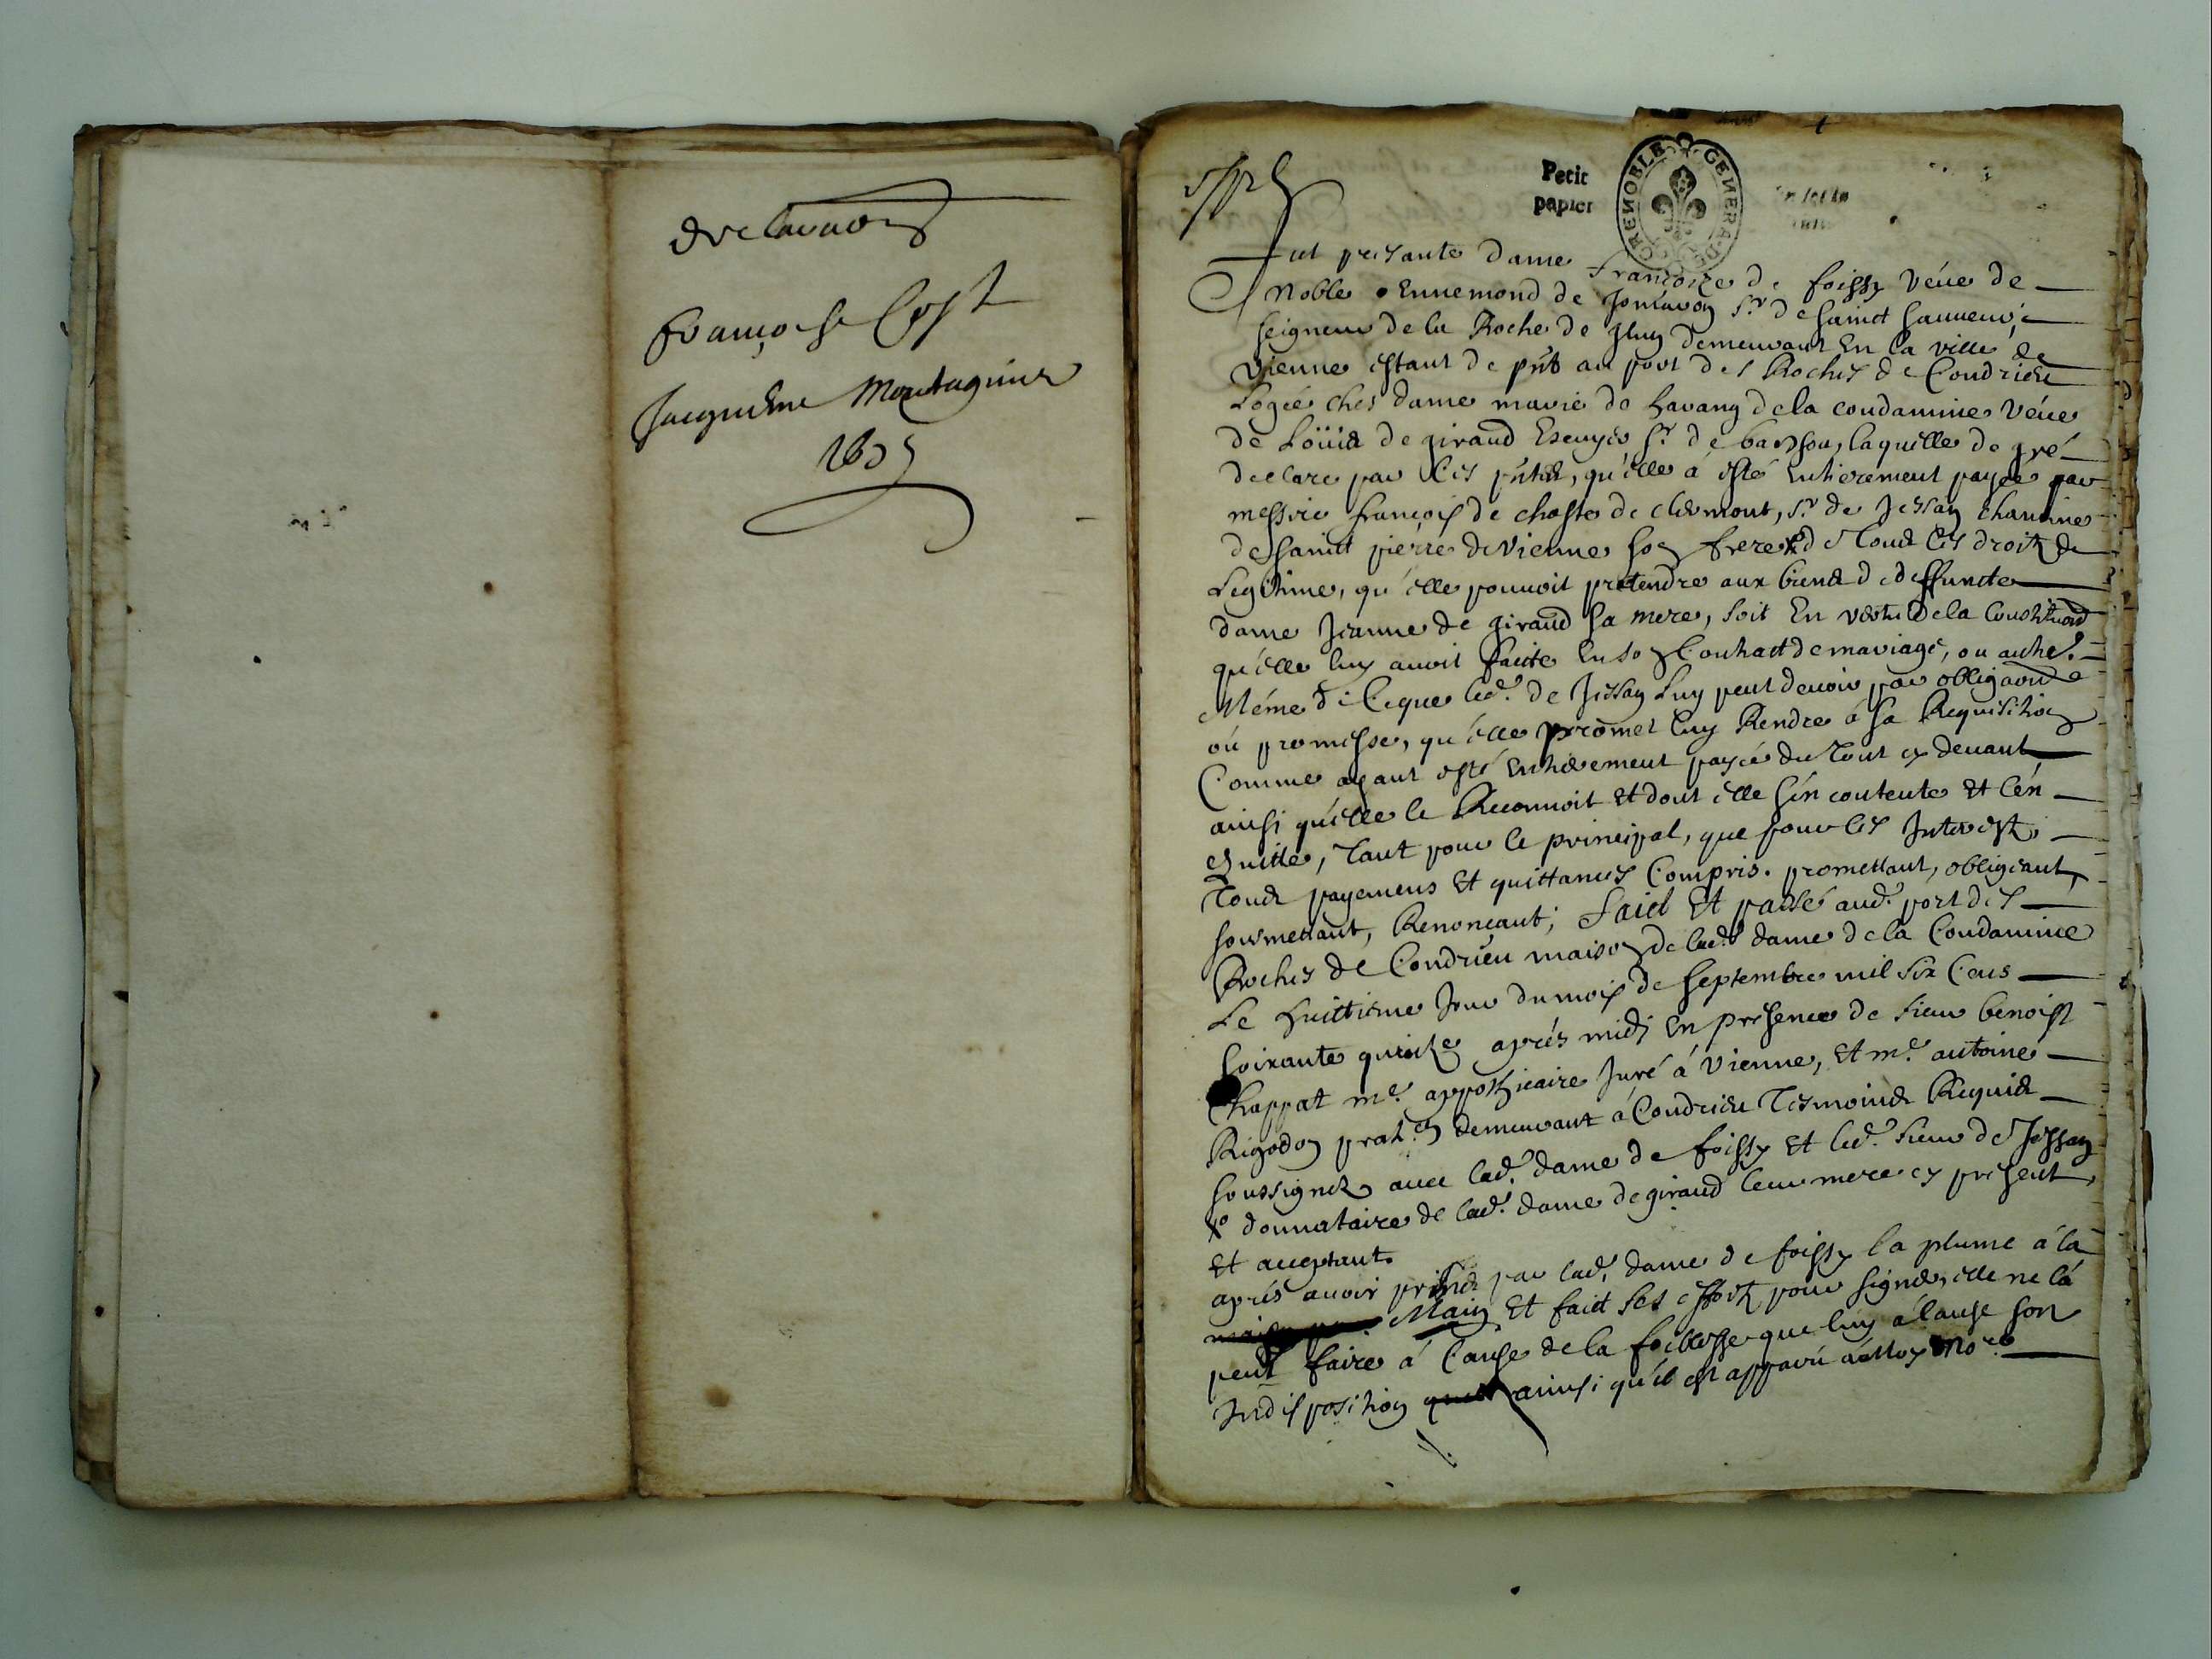 declaraôn
françoise Cost
Jacquéme Montagnier
Petit
papier
GRENOBLE GENERA
fut presante dame françoize de foissy véue de
noble Ennemond de Jonravon Sr. de sainct sauueur,
seigneur de la Roche de Gluy demeurant En la ville de
Vienne estant de pñt au port des Roches de Condrieu
Logée ches dame marie de harang de la condamine Véue
de Loüis de giraud Escuyer Sr. de laquelle de gré
declare par Ces pñtes, qu'elle á esté Entierement payée par
messire françois de chaste de clermont, Sr. de Jessan Chanoine
de sainct pierre de Vienne son frere de Tous les droitz de
Legitime, qu'elle pouuoit pretendre aux biens de deffuncte
dame Jeanne de giraud sa mere, soit En vertu de la Constituon
qu'elle luy auoit faite En son Contract de mariage, ou autre.
Méme de Ce que led. de Jessan Luy peut deuoir par obligaons
oú promesse, qu'elle promet luy Rendre á sa Requisition
Comme ayant esté Entierement payée du Tout cy deuant
ainsi qu'elle le Reconnoit Et dont elle s'én contente Et l'én
Quitte, Tant pour le principal, que pour les Interestz
Tous payemens Et quittances Compris. promettant, obligeant,
soumettant, Renonçant; faict Et passé aud. port des
Roches de Condrieu maison de lad. dame de la Condamine
Le huittiéme Jour du mois de septembre mil six Cens
soixante quinze aprés midi En presence de sieur benoist
Chappat me. appothicaire Juré á Vienne, Et me. antoine
Rigodon pratn. demeurant á Condrieu Tesmoins Requis
soussignez auec lad. dame de foissy Et led. sieur de Jessan
donnataire de lad. dame de giraud leur mere cy present
Et acceptant
aprés auoir prinse par lad. dame de foissy la plume á la
Main Et faict ses effortz pour signer, elle ne lá
peut faire á Cause de la foiblesse que luy á Causé son
Indisposition ainsi qu'il est apparú á moy Nore.